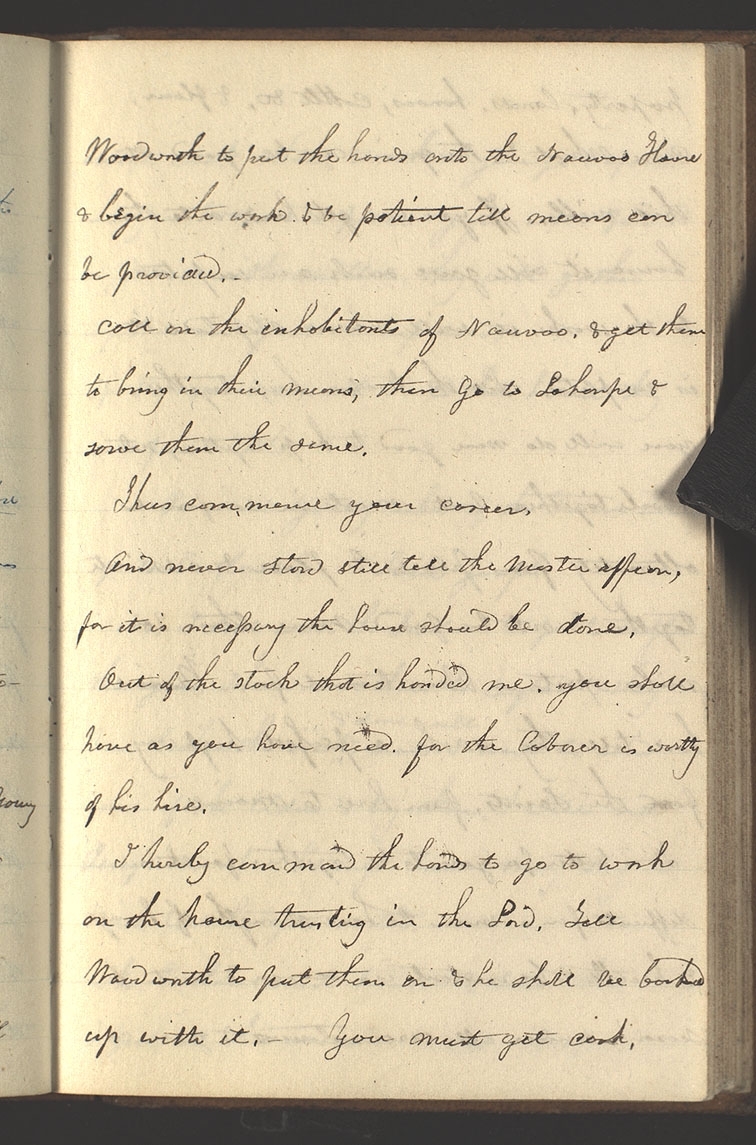 Woodworth to put the hands onto the Nauvoo House
& begin the work. & be patient till means can
be provided.–
Call on the inhabitants of Nauvoo. & get them
to bring in their means, then Go to Laharpe &
serve them the same.
Thus commence your career,
And never stand still till the Master appear,
for it is necessary the house should be done.
Out of the stock that is handed me. you shall
have as you have need. for the Laborer is worthy
of his hire.
I hereby command the hands to go to work
on the house trusting in the Lord. Tell
Woodworth to put them on & he shall be backed
up with it.– You must get cash,